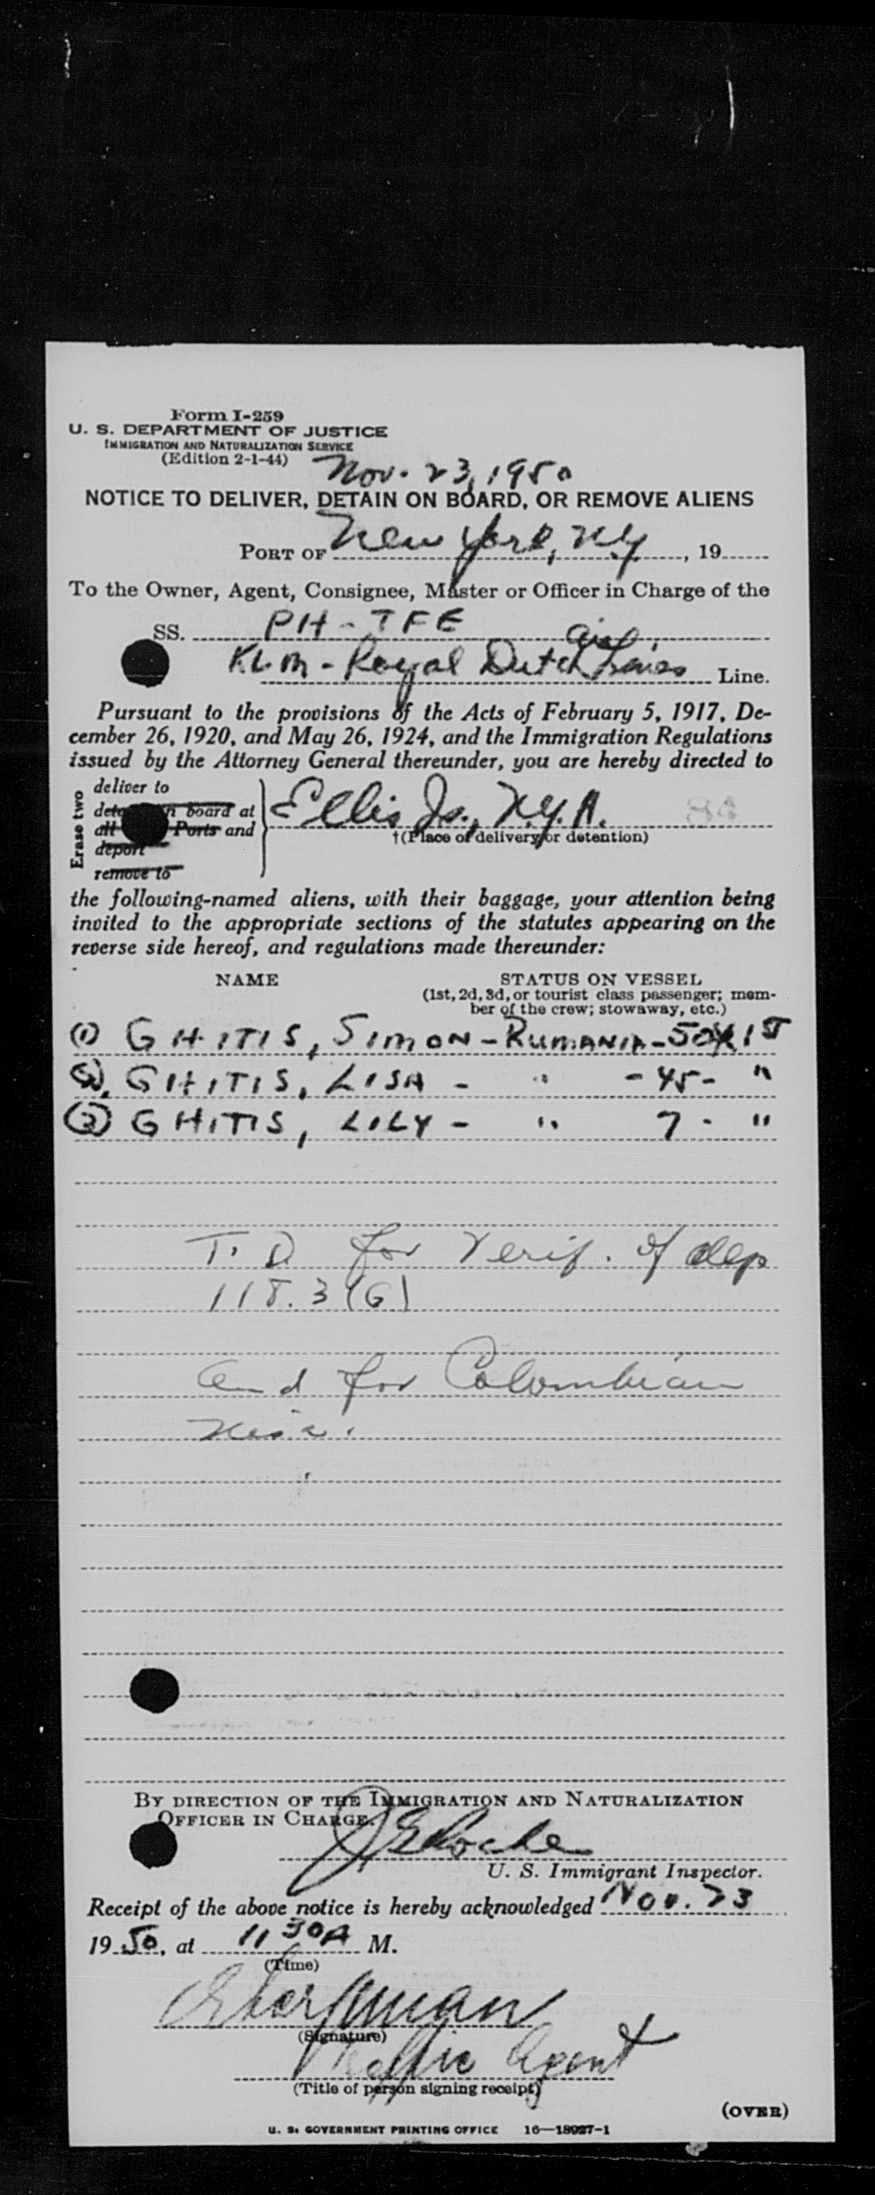 Form I-259
U. S. DEPARTMENT OF JUSTICE
IMMIGRATION AND NATURALIZATION SERVICE
(Edition 2-1-44)
Nov. 23, 1950
NOTICE TO DELIVER, DETAIN ON BOARD, OR REMOVE ALIENS
PORT OF New York, NY, 19
To the Owner, Agent, Consignee, Master or Officer in Charge of the
SS. PH-TFE
KLM - Royal Dutch Air Lines Line.
Pursuant to the provisions of the Acts of February 5, 1917, De-
cember 26, 1920, and May 26, 1924, and the Immigration Regulations
issued by the Attorney General thereunder, you are hereby directed to
Erase two
deliver to
on board at
all Ports and
deport
remove to
Ellis Is., N.Y.H. 84
†(Place of delivery or detention)
the following-named aliens, with their baggage, your attention being
invited to the appropriate sections of the statutes appearing on the
reverse side hereof, and regulations made thereunder:
NAME STATUS ON VESSEL
(1st, 2d, 3d, or tourist class passenger; mem-
ber of the crew; stowaway, etc.)
(1) GHITIS, SIMON - RUMANIA - 50 1ST
(2) GHITIS, LISA - " - 45 - "
(3) GHITIS, LILY - " 7 - "
T. D. for Verif. of dep
118.3 (G)
and for Colombian
visa.
BY DIRECTION OF THE IMMIGRATION AND NATURALIZATION
OFFICER IN CHARGE.
U. S. Immigrant Inspector.
Receipt of the above notice is hereby acknowledged Nov. 23
19 50, at 11 30 A M.
(Time)
(Signature)
Traffic Agent
(Title of person signing receipt)
(OVER)
U. S. GOVERNMENT PRINTING OFFICE 16—18927-1